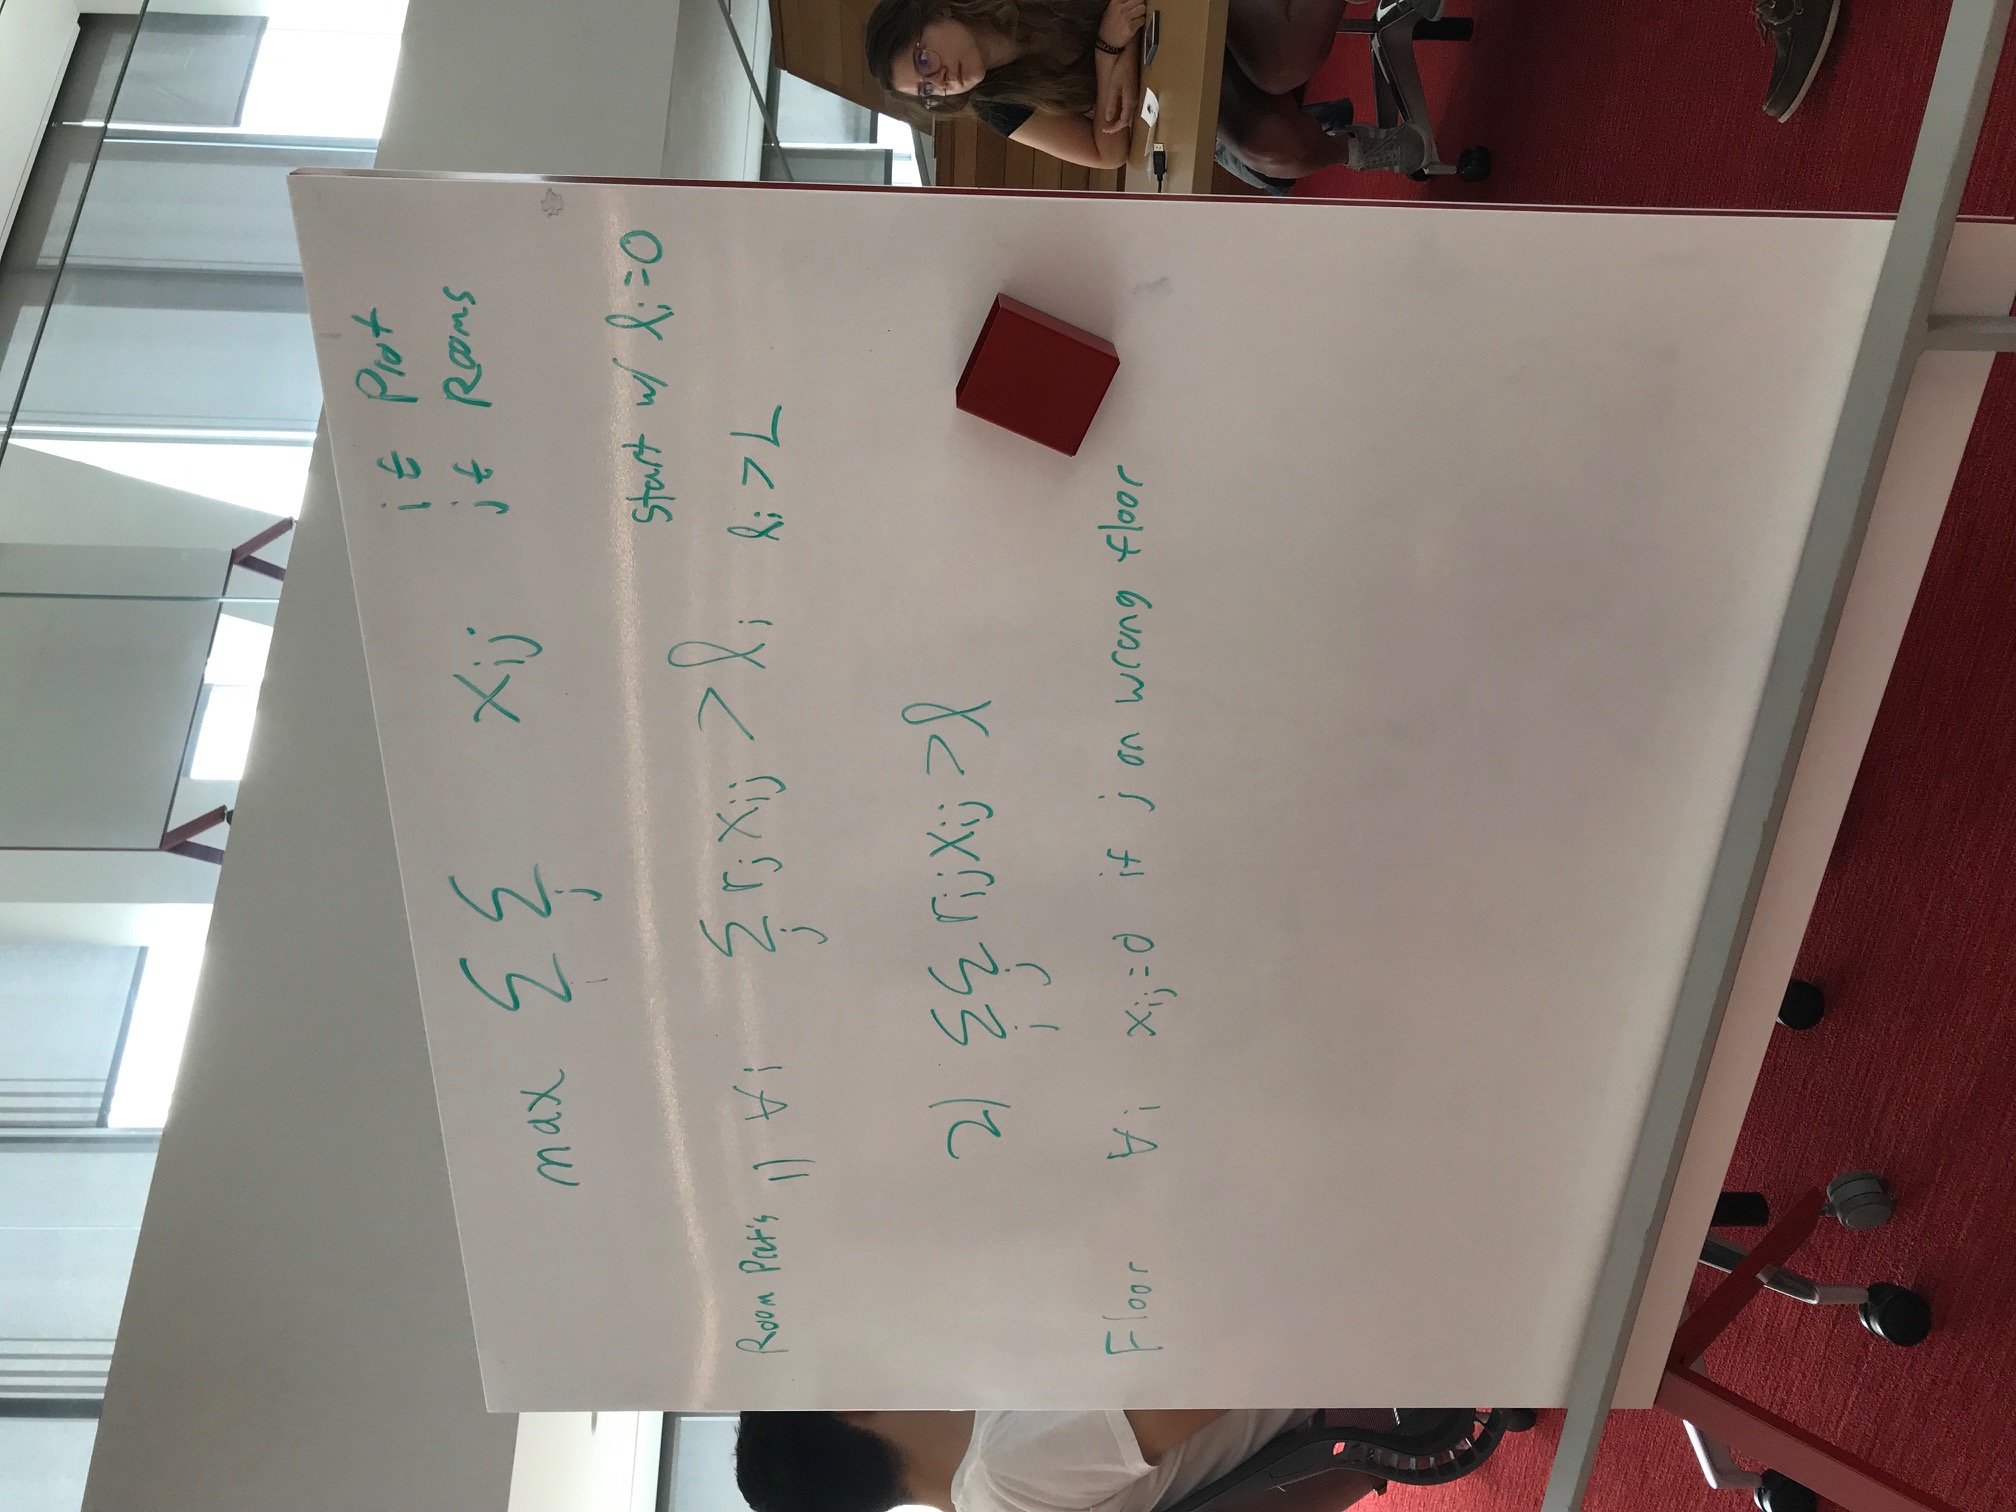 i ∈ Prof
j ∈ Rooms
max ∑i ∑j xij
start w/ li=0
Room Pref's 1) ∀i ∑j rj xij > li li > L
2) ∑i ∑j rij xij > l
Floor ∀i xij=0 if j on wrong floor